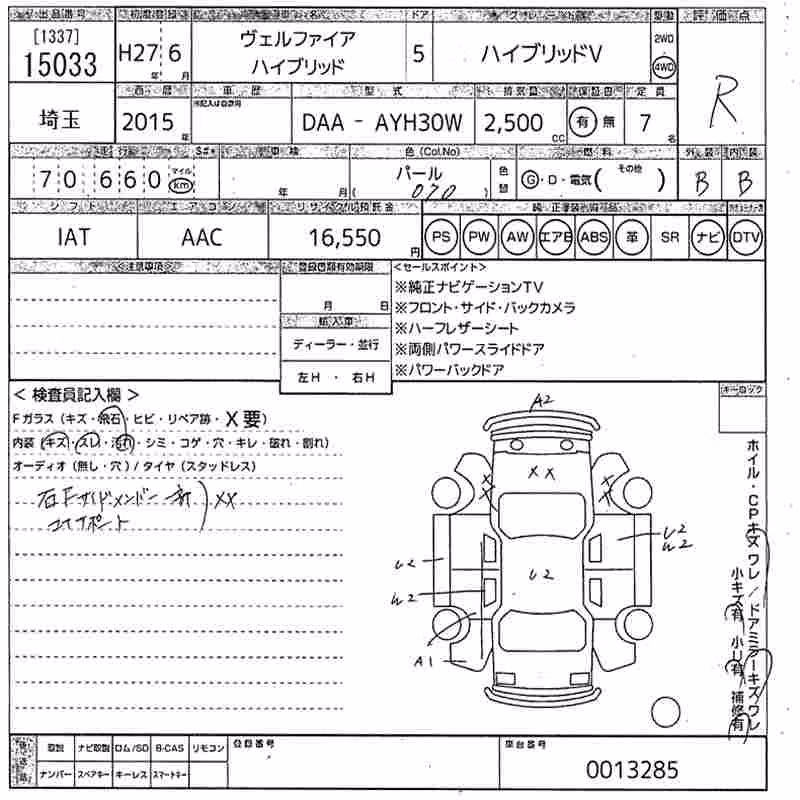 出品番号 初度登録 車名 ドア グレード 駆動 評価点
[1337]
15033
H27年 6月
ヴェルファイア
ハイブリッド
5
ハイブリッドV
2WD
4WD
R
埼玉
西暦 車歴 型式 排気量 保証書 定員
※記入は自家用
2015年
DAA - AYH30W
2,500cc
有 無
7名
走行 車検 色(Col.No) 燃料 外装 内装
70,660 マイル km
年 月
パール
(070)
色替
G・D・電気( その他 )
B B
シフト エアコン リサイクル預託金 純正装備品
IAT AAC 16,550円
PS PW AW エアB ABS 革 SR ナビ DTV
注意事項 登録書類有効期限
月 日
輸入車
ディーラー・並行
左H ・ 右H
<セールスポイント>
※純正ナビゲーションTV
※フロント・サイド・バックカメラ
※ハーフレザーシート
※両側パワースライドドア
※パワーバックドア
< 検査員記入欄 >
Fガラス (キズ・飛石・ヒビ・リペア跡・X要)
内装 (キズ・スレ・汚れ・シミ・コゲ・穴・キレ・破れ・割れ)
オーディオ (無し・穴) / タイヤ (スタッドレス)
右Fサイドメンバー
コアサポート
XX
キーロック
A2
XX
X
X
X
X
U2
U2
W2
U2
W2
A1
ホイル・CPキズワレ/ドアミラーキズワレ
小キズ有 小U有 補修有
後送品
取説 ナビ取説 ロム/SD B-CAS リモコン
ナンバー スペアキー キーレス スマートキー
登録番号
車台番号
0013285